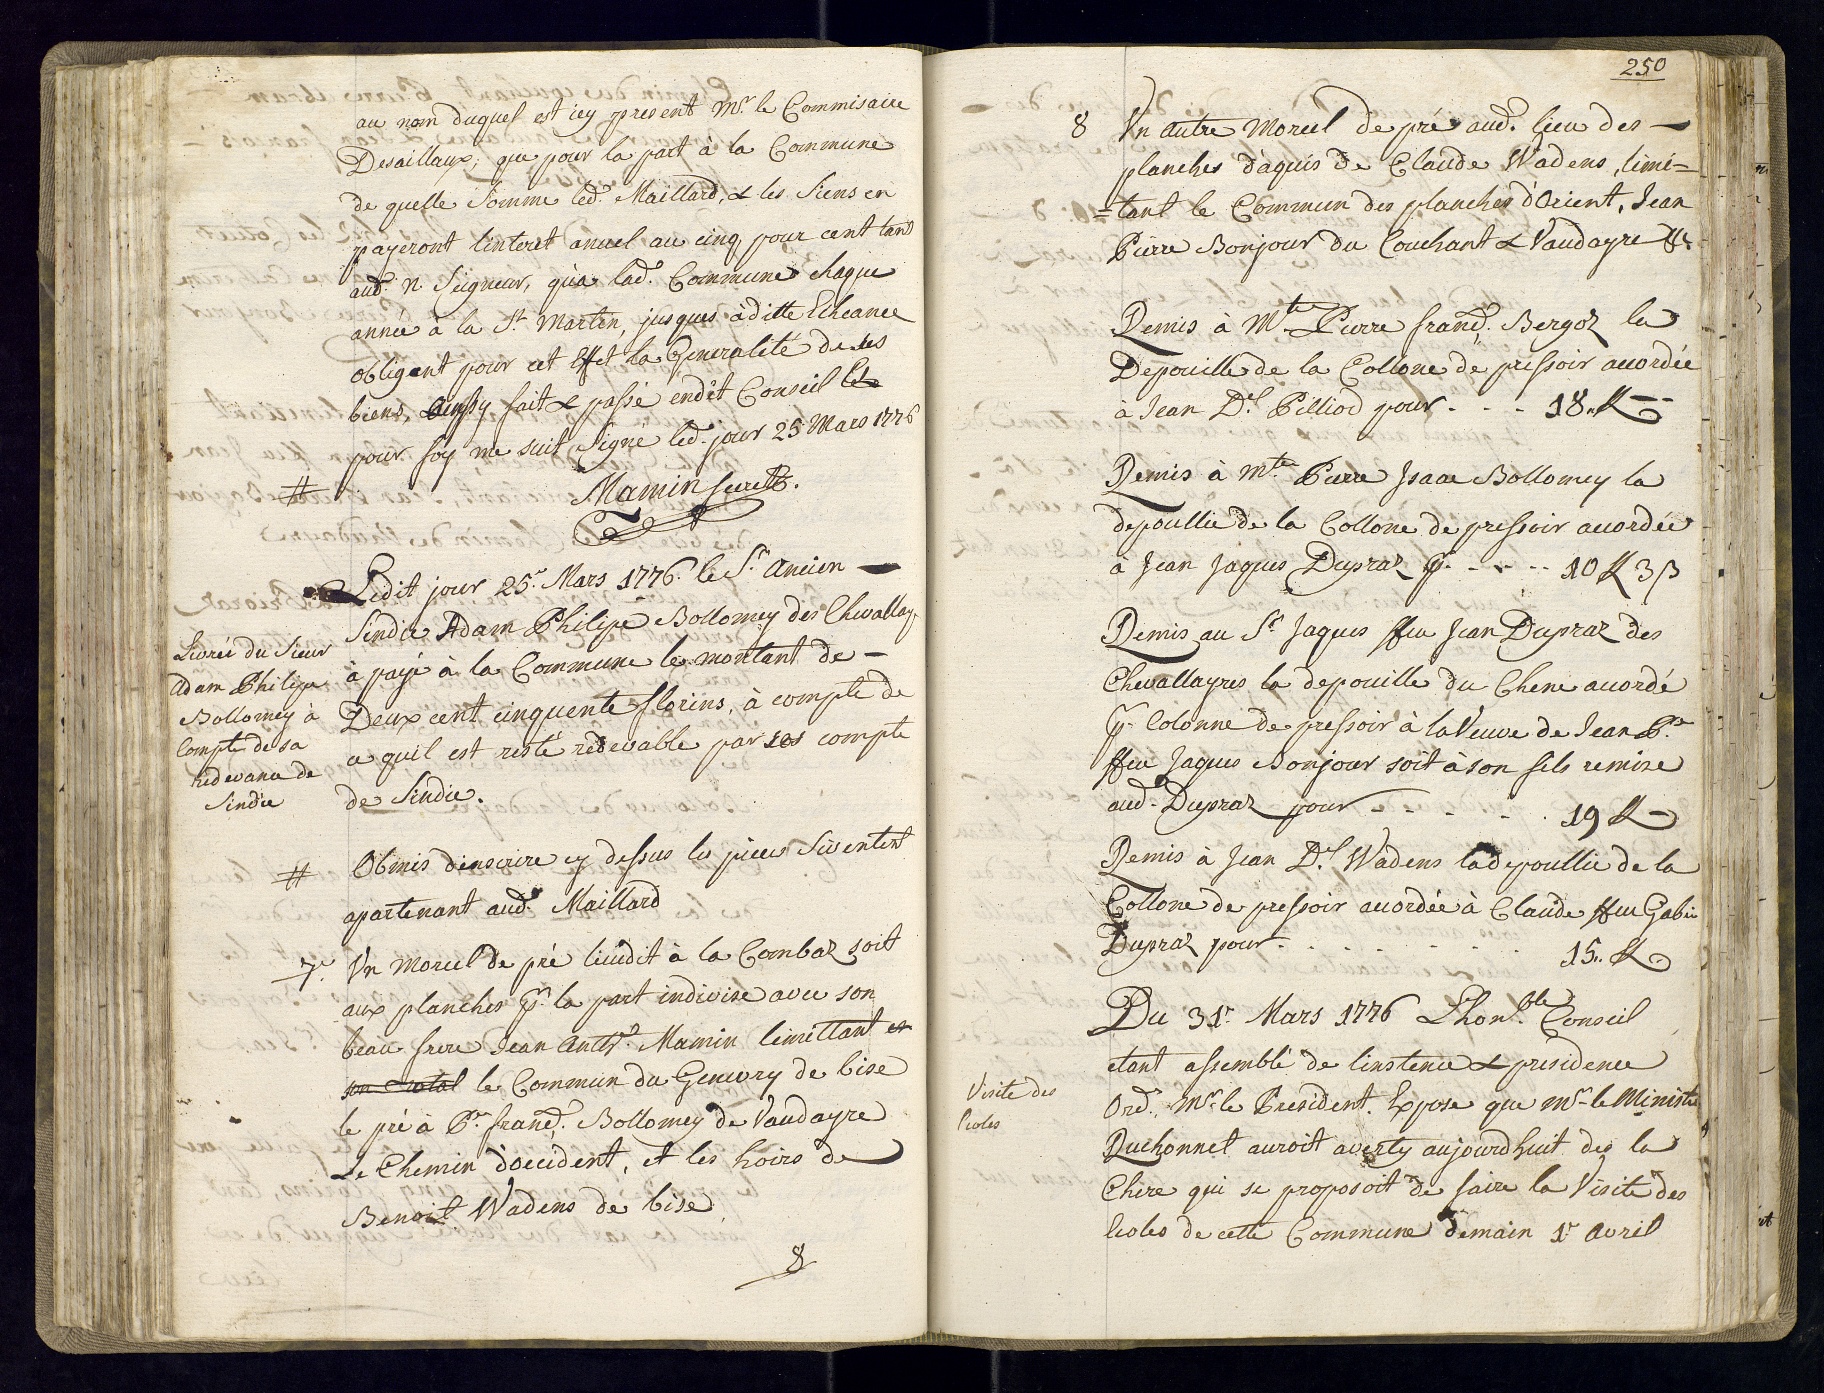 au nom duquel est icy present Mr. le Commisaire
Desaillaux, que pour la part à la Commune
de quelle Somme led. Maillard, & les Siens en
payeront linteret anuel au cinq pour cent tant
aud. n. Seigneur, qu'a lad. Commune chaque
année à la St. Martin, jusques à ditte Echeance
obligent pour cet Effet la Generalité de ses
biens, Ainsy fait & passé endit Conseil
pour foy me suit Signé led. jour 25 Mars 1776
# Mamin secret.
Ledit jour 25e. Mars 1776. le Sr. Ancien —
Sindic Adam Philipe Bollomey des Chevallay.
à payé à la Commune le montant de —
Deux cent cinquente florins, à compte de
ce quil est resté redevable par ses compte
de Sindic.
Livréé du Sieur
Adam Philipe
Bollomey à
Compte de sa
redevance de
Sindic
# Obmis d'enscrire cy dessus les pieces Siventent
apartenant aud. Maillard
7e. Un morcel de pré lieudit à la Combaz soit
aux planches pr. la part indivise avec son
beau frere Jean Ants. Mamin limittant
le Commun du Genevry de bise
le pré à Pre. franç. Bollomey de Vaudayre
Le Chemin d'occident, et les hoirs de
Benoit Wadens de bise
8
250
8 Un autre Morcel de pré aud. lieu des —
planches d'aquis de Claude Wadens, limi=
=tant le Commun des planches d'Orient, Jean
Pierre Bonjour du Couchant & Vaudayre
Remis à Mtre Pierre franç. Bergoz la
Depouille de la Collone de pressoir accordée
à Jean Dl. Pilliod pour . . . 18 ƒƒ —
Remis à Mtre Pierre Isaac Bollomey la
depoullie de la Collone de pressoir accordée
à Jean Jaques Dupraz pr. . . . . 10 ƒƒ 3 ß
Remis au Sr. Jaques ffeu Jean Dupraz des
Chevallayres la depouille du Chene accordé
pr. Colonne de pressoir à la Veuve de Jean Pre.
ffeu Jaques Bonjour soit à son fils remise
aud. Dupraz pour . . . . . 19 ƒƒ —
Remis à Jean Dl. Wadens la depoullie de la
Collone de pressoir accordée à Claude ffeu Gab.
Dupraz pour . . . . . . 15 ƒƒ
Du 31e. Mars 1776 L'honble. Conseil
etant assemblé de linstence & présidence
Ord. Mr. le President. Expose que Mr. le Ministre
Ruchonnet auroit averty aujourd'huit des la
Chire qui se proposoit de faire la Visite des
Ecoles de cette Commune demain 1r. Avril
Visite des
Ecoles